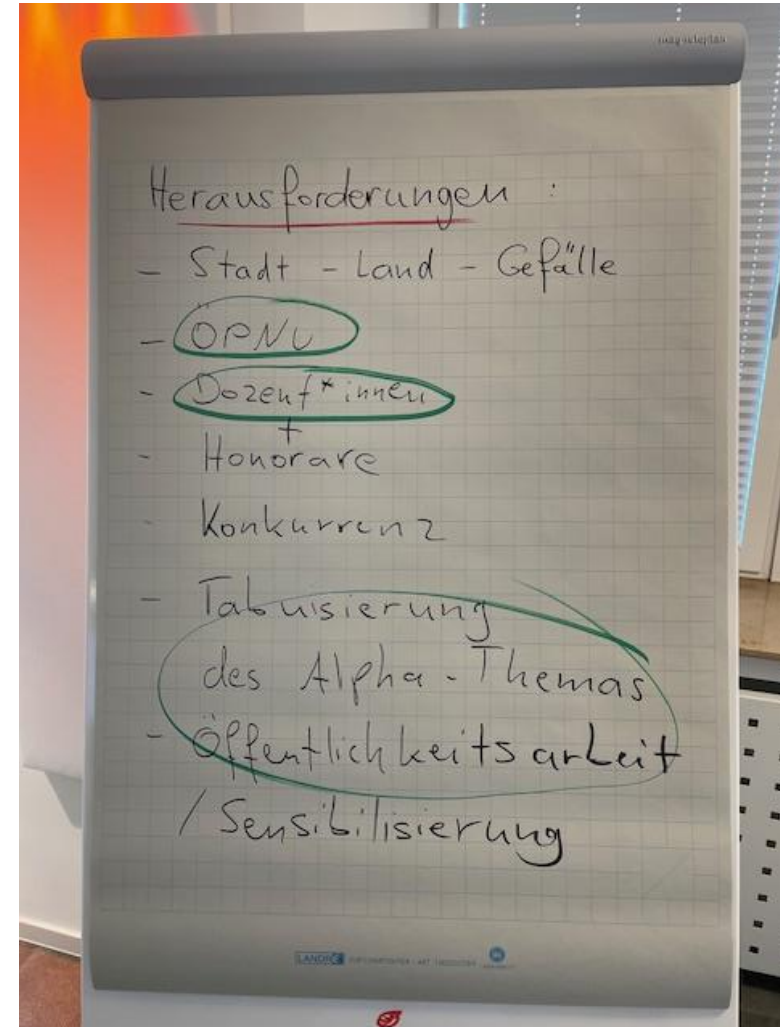 magnetoplan
Herausforderungen :
- Stadt - Land - Gefälle
- ÖPNV
- Dozent*innen
+
- Honorare
- Konkurrenz
- Tabuisierung
des Alpha-Themas
- Öffentlichkeitsarbeit
/ Sensibilisierung
LANDRÉ